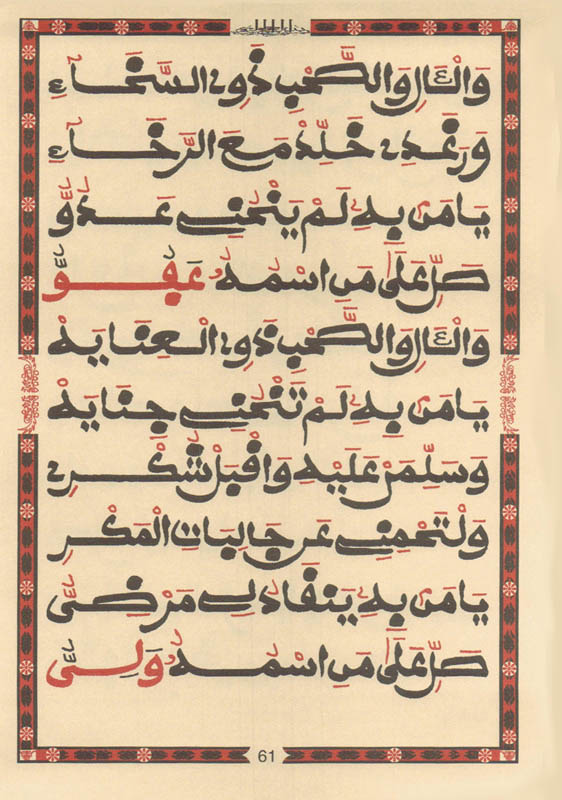 وَالْآلِ وَالصَّحْبِ ذَوِي السَّخَاءِ
وَرَغَدِي خَلِّدْ مَعَ الرَّخَاءِ
يَا مَن بِهِ لَمْ يَنْحُنِي عَدُوٌّ
صَلِّ عَلَى مَنِ اسْمُهُ عَفُوٌّ
وَالْآلِ وَالصَّحْبِ ذَوِي الْعِنَايَهْ
يَا مَن بِهِ لَمْ تَنْحُنِي جِنَايَهْ
وَسَلِّمَنْ عَلَيْهِ وَاقْبَلْ شُكْرِي
وَلْتَحْمِنِي عَن جَالِبَاتِ الْمَكْرِ
يَا مَن بِهِ يَنقَادُ لِي مَرْضِيُّ
صَلِّ عَلَى مَنِ اسْمُهُ وَلِيُّ
61